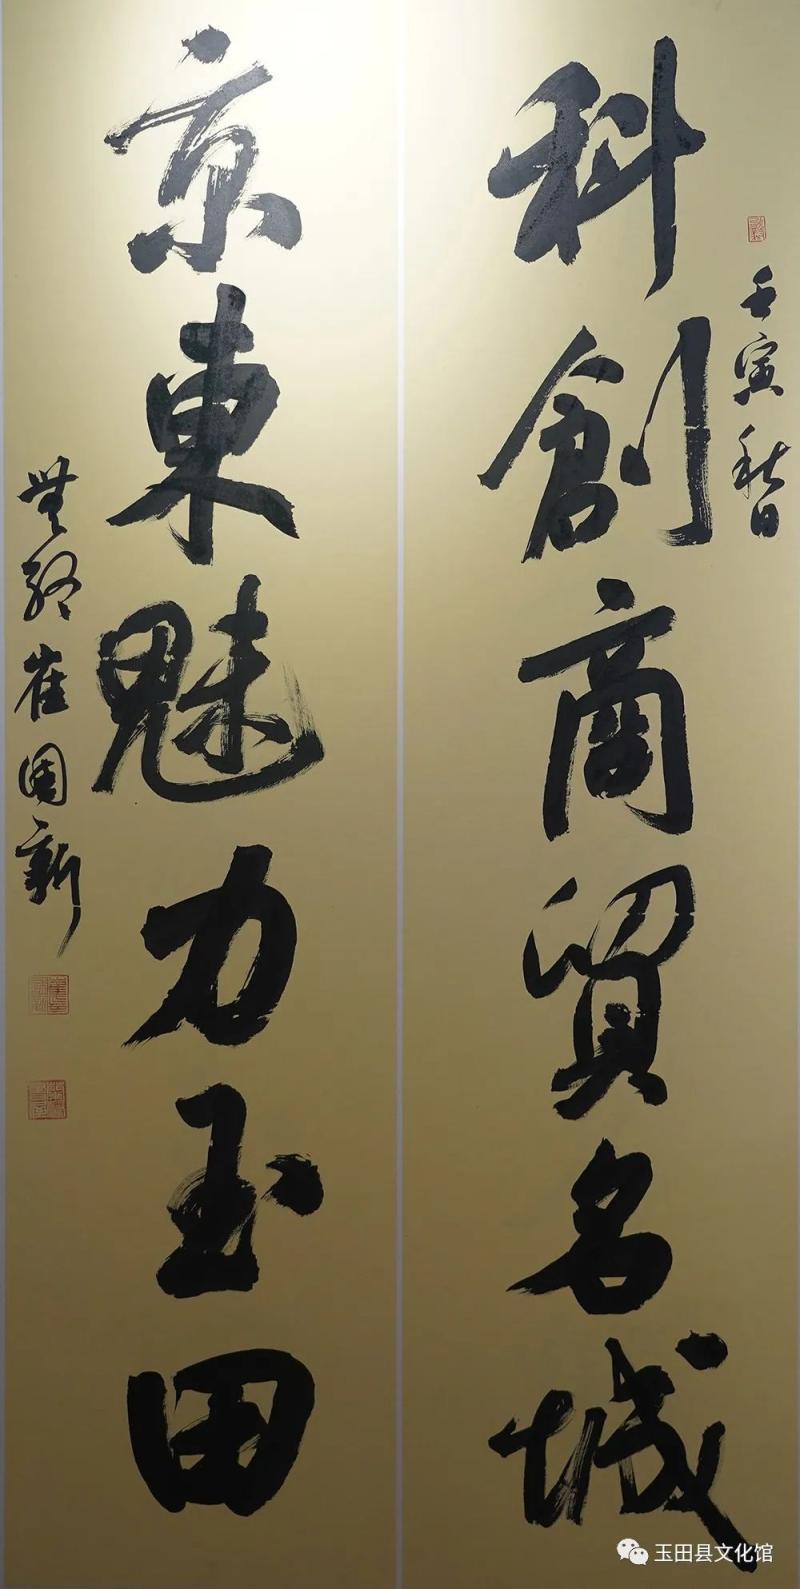 壬寅秋日
科創商貿名城
京東魅力玉田
無終崔國新
玉田县文化馆